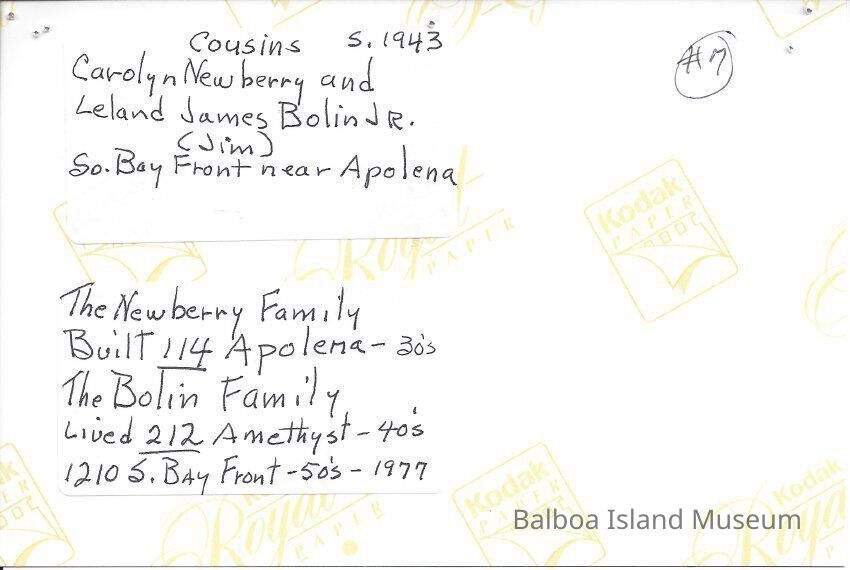 Cousins S. 1943
#7
Carolyn Newberry and
Leland James Bolin JR.
(Jim)
So. Bay Front near Apolena
Kodak
PAPER
Royal
PAPER
The Newberry Family
Built 114 Apolena - 30's
The Bolin Family
Lived 212 Amethyst - 40's
1210 S. Bay Front - 50's - 1977
Kodak
PAPER
Royal
PAPER
Kodak
Balboa Island Museum